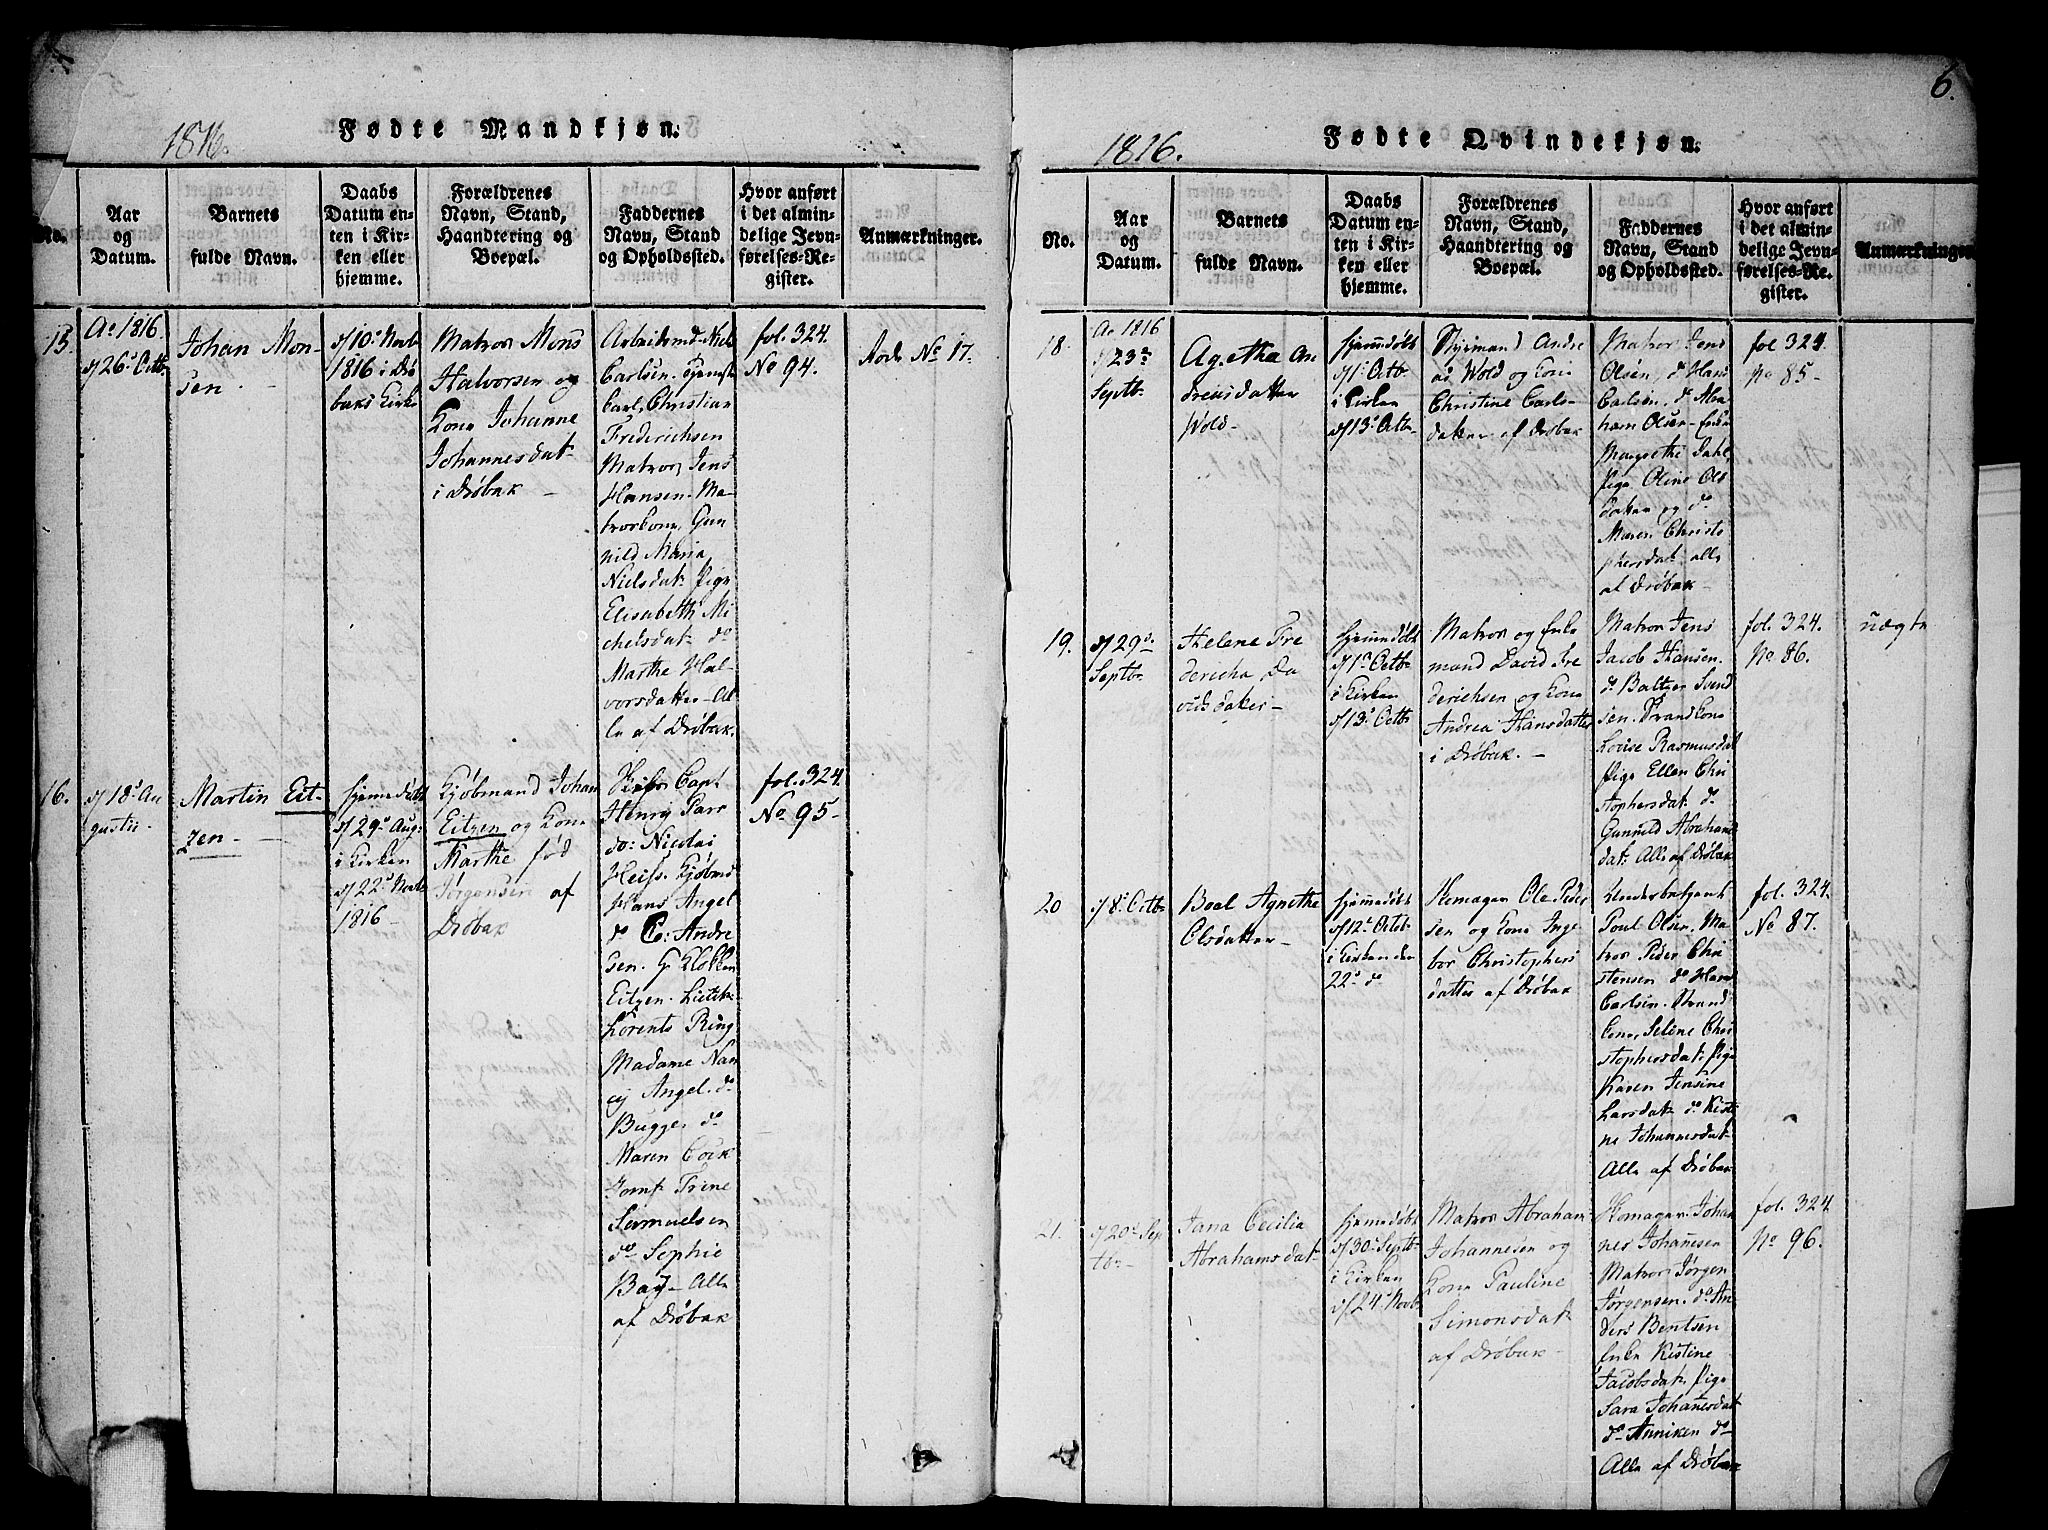 1816.
Fødte Mandkjøn.
No.
Aar
og
Datum.
Barnets
fulde Navn.
Daabs
Datum en-
ten i Kir-
ken eller
hjemme.
Forældrenes
Navn, Stand,
Haandtering og
Boepæl.
Faddernes
Navn, Stand
og Opholdssted.
Hvor anført
i det almin-
delige Jevn-
førelses-Re-
gister.
Anmærkninger.
15.
Ao 1816
d/26 Octb
Johan Mon-
sen
d/10 Novb
1816 i Drø
baks Kirk
Matros Mons
Halvorsen og
Kone Johanne
Johannesdat
i Drøbak
Arbeidsmd Niels
Carlsen
Carl Christian
Frederichsen
Matros Jens
Hansen. Ma-
troskone Gun
nild Maria
Nielsdat: Pige
Elisabeth Mi
chelsdat: do
Marthe Hal-
vorsdatter - Al-
le af Drøbak.
fol. 324.
No 94.
No 17.
16.
d/18 Au
gustii
Martin Eit-
zen
hjemedøbt
d/29 Aug:
i Kirken
d/22 Novb
1816
Kjøbmand Johan
Eitzen og Kone
Marthe fød
Jørgensen af
Drøbak
Skibs Capt
Henry Parr
do: Nicolai
Heiss. Kjøbmd
Hans Angel
do C: Andre
sen. G Klokken
Eitzen.
Lorents Ring
Madame Nan
cy Angel. do
Bugge. do
Maren Cock
Jomf: Trine
Samuelsen
do Sophie
Bay - Alle
af Drøbak
fol. 324.
No 95
6.
1816.
Fødte Qvindekjøn.
No.
Aar
og
Datum.
Barnets
fulde Navn.
Daabs
Datum en-
ten i Kir-
ken eller
hjemme.
Forældrenes
Navn, Stand,
Haandtering og
Boepæl.
Faddernes
Navn, Stand
og Opholdssted.
Hvor anført
i det almin-
delige Jevn-
førelses-Re-
gister.
Anmærkninger
18.
Ao 1816
d/23
Septb:
Agetha An
dreasdatter
Wold
hjemmdøbt
d/1 Octb
i Kirken
d/13 Octb
Styrmand Andre
as Wold og Kone
Christine Carls-
datter af Drøbak
Matros Jens
Olsen, do Hans
Carlsen, do Abra
ham Olsen - Enke
Margrethe Dahl,
Pige Oline Ols
datter og do
Maren Christo
phersdat: alle
af Drøbak
fol 324.
No 85
19.
d/29
Septbr
Helene Fre
dericha Da
vidsdatter
hjemmdøbt
d/1 Octb
i Kirken
d/13 Octb
Matros og Enke
mand David Fre
derichsen og Kone
Andrea Hansdatter
i Drøbak.
Matros Jens
Jacob Hansen.
do Baltzer Svend
sen. Strandkone
Louise Rasmusdat
Pige Ellen Chri
stophersdat: do
Gunnild Abrahams
dat: Alle af Drøbak
fol. 324.
No 86.
uægte
20
d/8 Octb
Boel Agnethe
Olsdatter
hjemmedøbt
d/12 Octob
i Kirken den
22 do
Skomager Ole Peder
sen og Kone Inge
bor Christophers
datter af Drøbak
Underbetjent
Poul Olsen, Ma-
tros Peder Chri
stensen do Hans
Carlsen. Strand
Kone, Seline Chri
stophersdat: Pige
Karen Jensine
Larsdat: do Kisti
ne Johannesdat:
Alle af Drøbak
fol. 324.
No 87.
21.
d/20 Sep
tbr
Jana Cecilia
Abrahamsdat:
hjemedøbt
d/30 Septb
i Kirken
d/24 Novb
Matros Abraham
Johannesen og
Kone Pauline
Simonsdat:
af Drøbak
Skomager Johan
nes Johanesen
Matros Jørgen
Jørgensen. do An
ders Bentsen
Enke Kistine
Jacobsdat: Pige
Sara Johanesdat
do Anniken do
Alle af Drøbak
fol. 324
No 96.